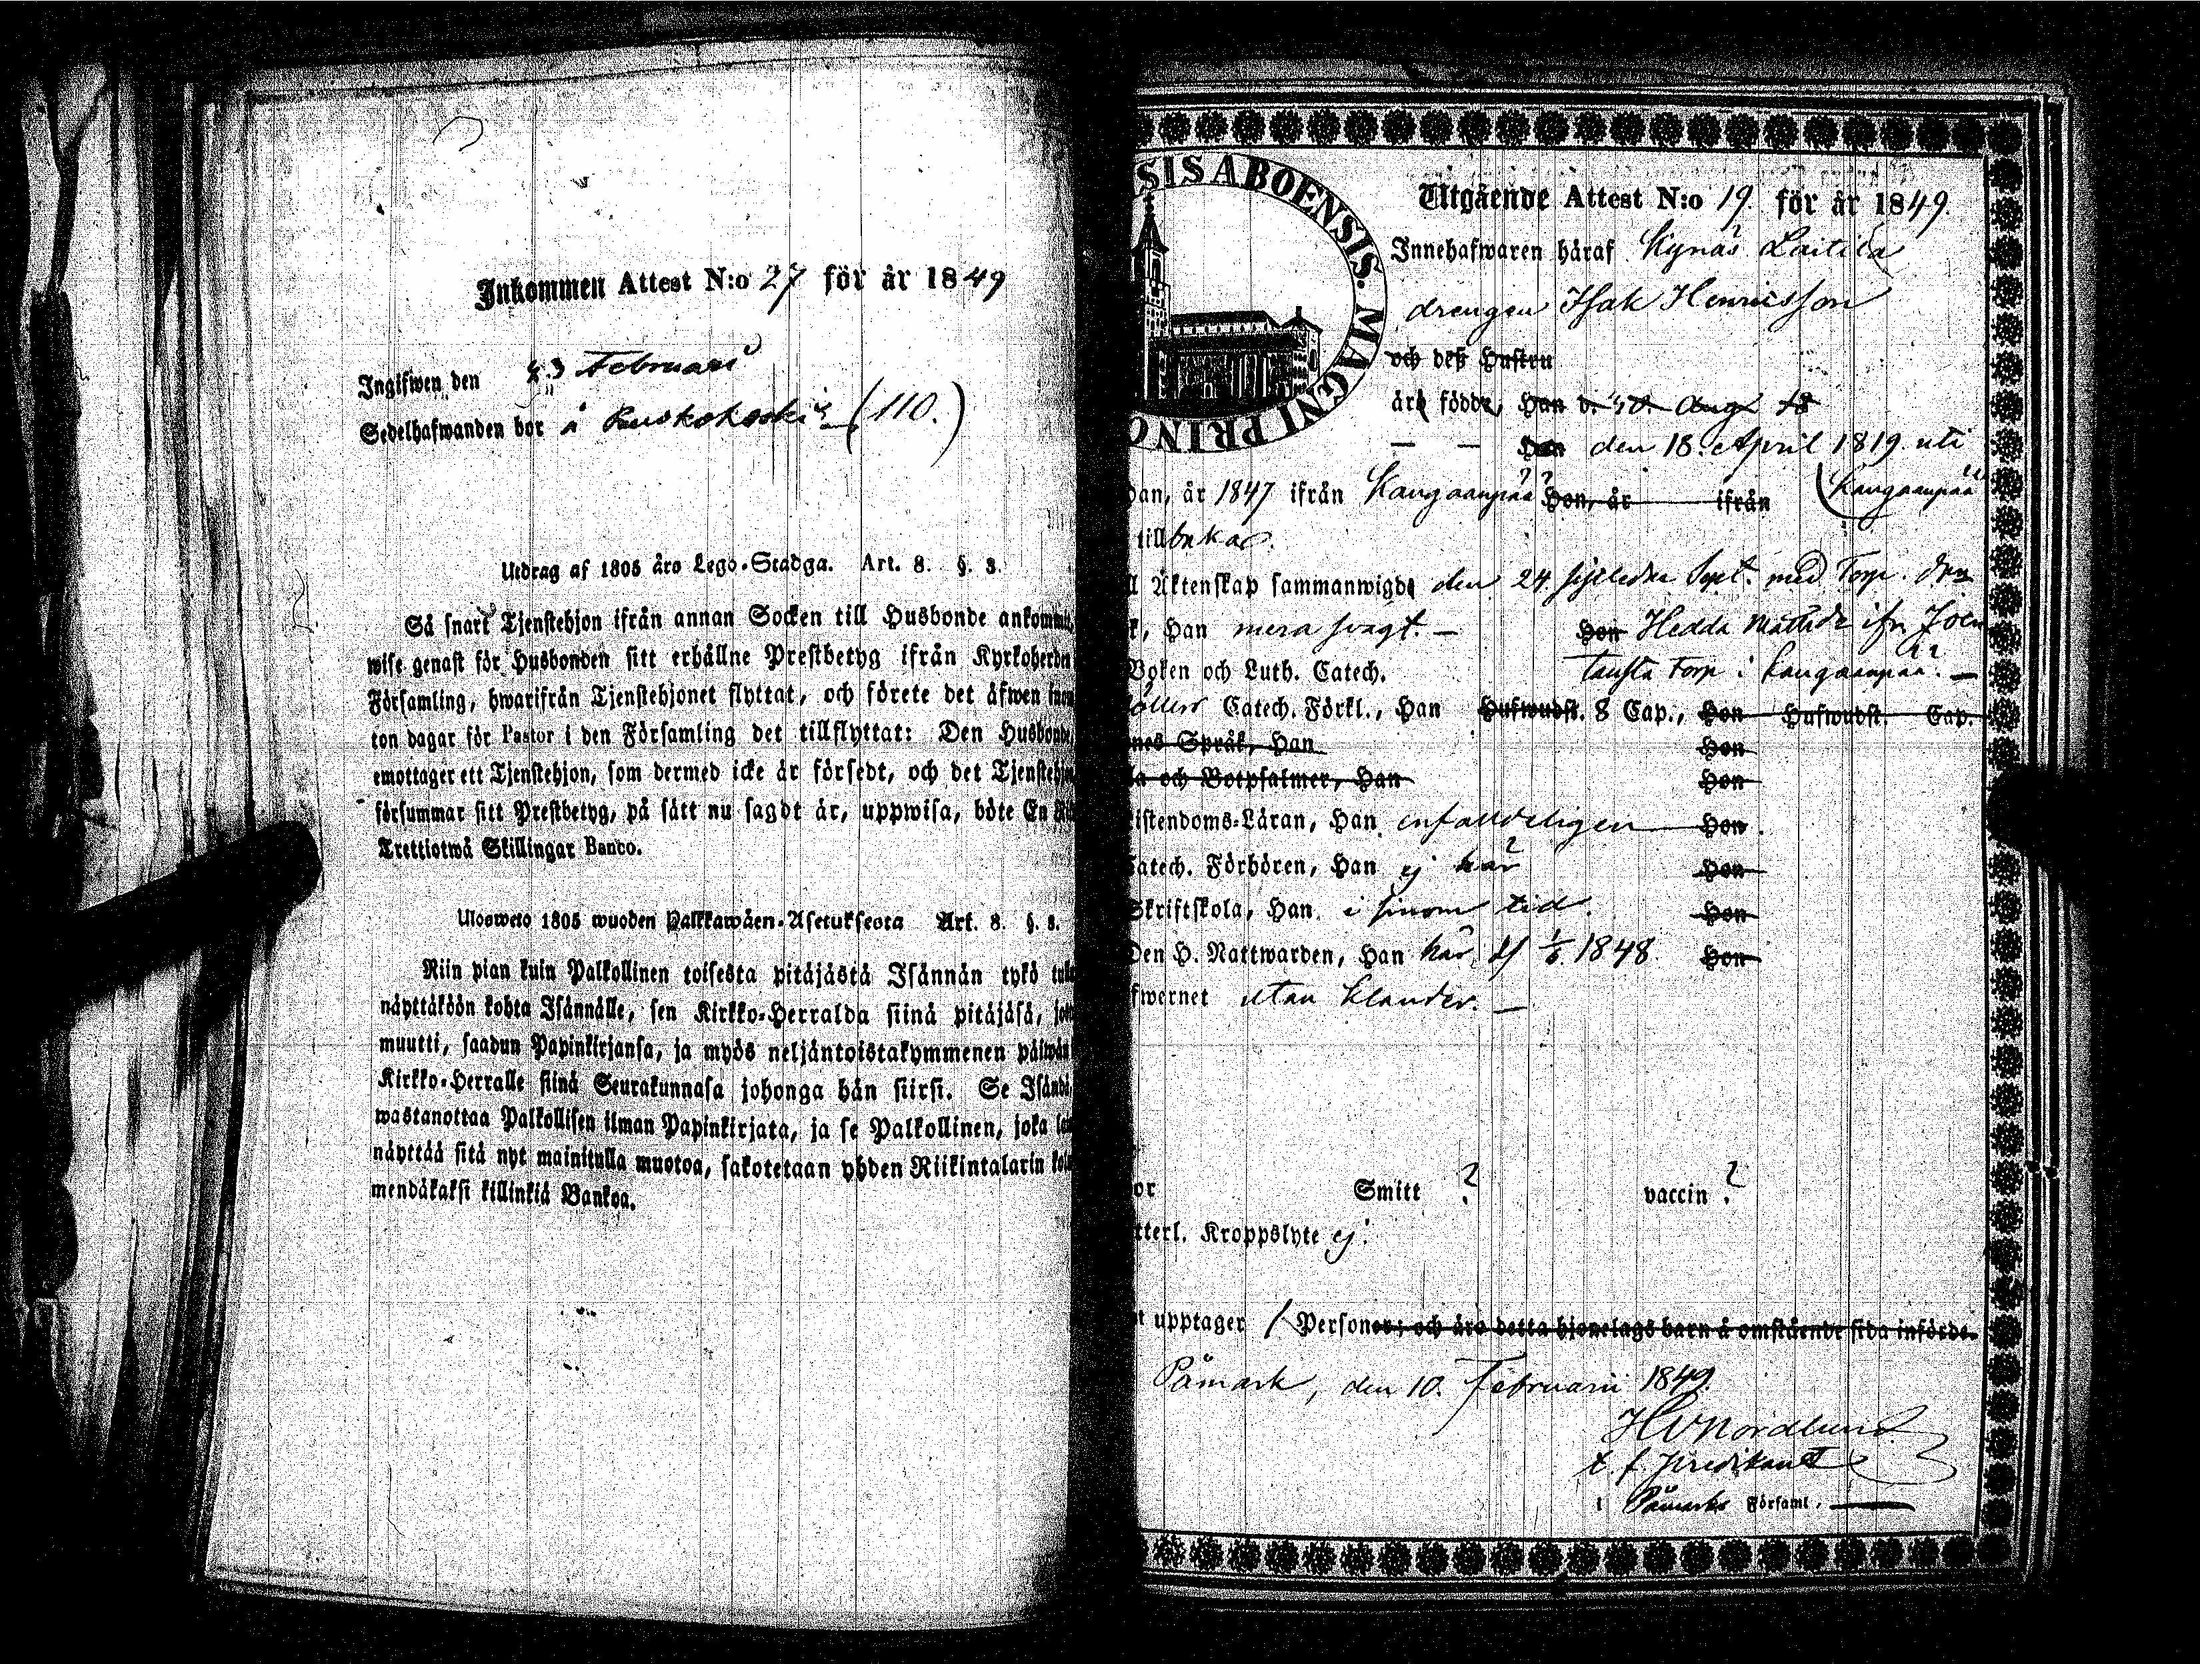 Inkommen Attest N:o 27 för år 1849
Ingifwen den 23 Februari
Sedelhafwanden bor å Ruskokoski (110.)
Utdrag af 1805 års Lego-Stadga. Art. 8. §. 3.
Så snart Tjenstehjon ifrån annan Socken till Husbonde ankommit,
wise genast för Husbonden sitt erhållne Prestbetyg ifrån Kyrkoherden
Församling, hwarifrån Tjenstehjonet flyttat, och förete det äfwen inom
ton dagar för Pastor i den Församling det tillflyttat: Den Husbonde,
emottager ett Tjenstehjon, som dermed icke är försedt, och det Tjenstehjon
försummar sitt Prestbetyg, på sätt nu sagdt är, uppwisa, böte En
Trettiotwå Skillingar Banco.
Ulosweto 1805 wuoden Palkkawäen-Asetuksesta Art. 8. §. 3.
Niin pian kuin Palkollinen toisesta pitäjästä Isännän tykö
näyttäköön kohta Isännälle, sen Kirkko-Herralda siinä pitäjäsä,
muutti, saadun Papinkirjansa, ja myös neljäntoistakymmenen päiwän
Kirkko-Herralle siinä Seurakunnasa johonga hän siirsi. Se Isändä
wastanottaa Palkollisen ilman Papinkirjata, ja se Palkollinen, joka
näyttää sitä nyt mainitulla muotoa, sakotetaan yhden Riikintalarin
mendäkaksi killinkiä Bankoa.
SIS ABOENSIS. MAGNI PRINC
Utgående Attest N:o 19. för år 1849.
Innehafwaren häraf Kynäs Laitila
drengen Isak Henricsson
och deß Hustru
äro födde, Han d. Aug. 18
Hon den 18. April 1819 uti
Han, år 1847 ifrån Kangaanpää Hon, år ifrån Kangaanpää
tillbakar.
Äktenskap sammanwigde den 24. sistledne Sept. med Torp. drn
Han mera swagt. — Hon Hedda ifr
Boken och Luth. Catech. Torp i Kangaanpää. —
Catech. Förkl., Han Hufwudst. 8 Cap., Hon Hufwudst. Cap.
nes Språk, Han Hon
la och Botpsalmer, Han Hon
istendoms-Läran, Han enfalldeligen Hon
Catech. Förhören, Han ej här Hon
Skriftskola, Han i sinom tid. Hon
Den H. Nattwarden, Han här 1848. Hon
fwernet utan klander. —
or Smitt ? vaccin ?
tterl. Kroppslyte ej.
t upptager 1 Personer; och äro detta hjonelags barn å omstående sida införde.
Påmark, den 10. Februarii 1849.
Nordlund
t. f. Predikant
i Påmarks Församl.